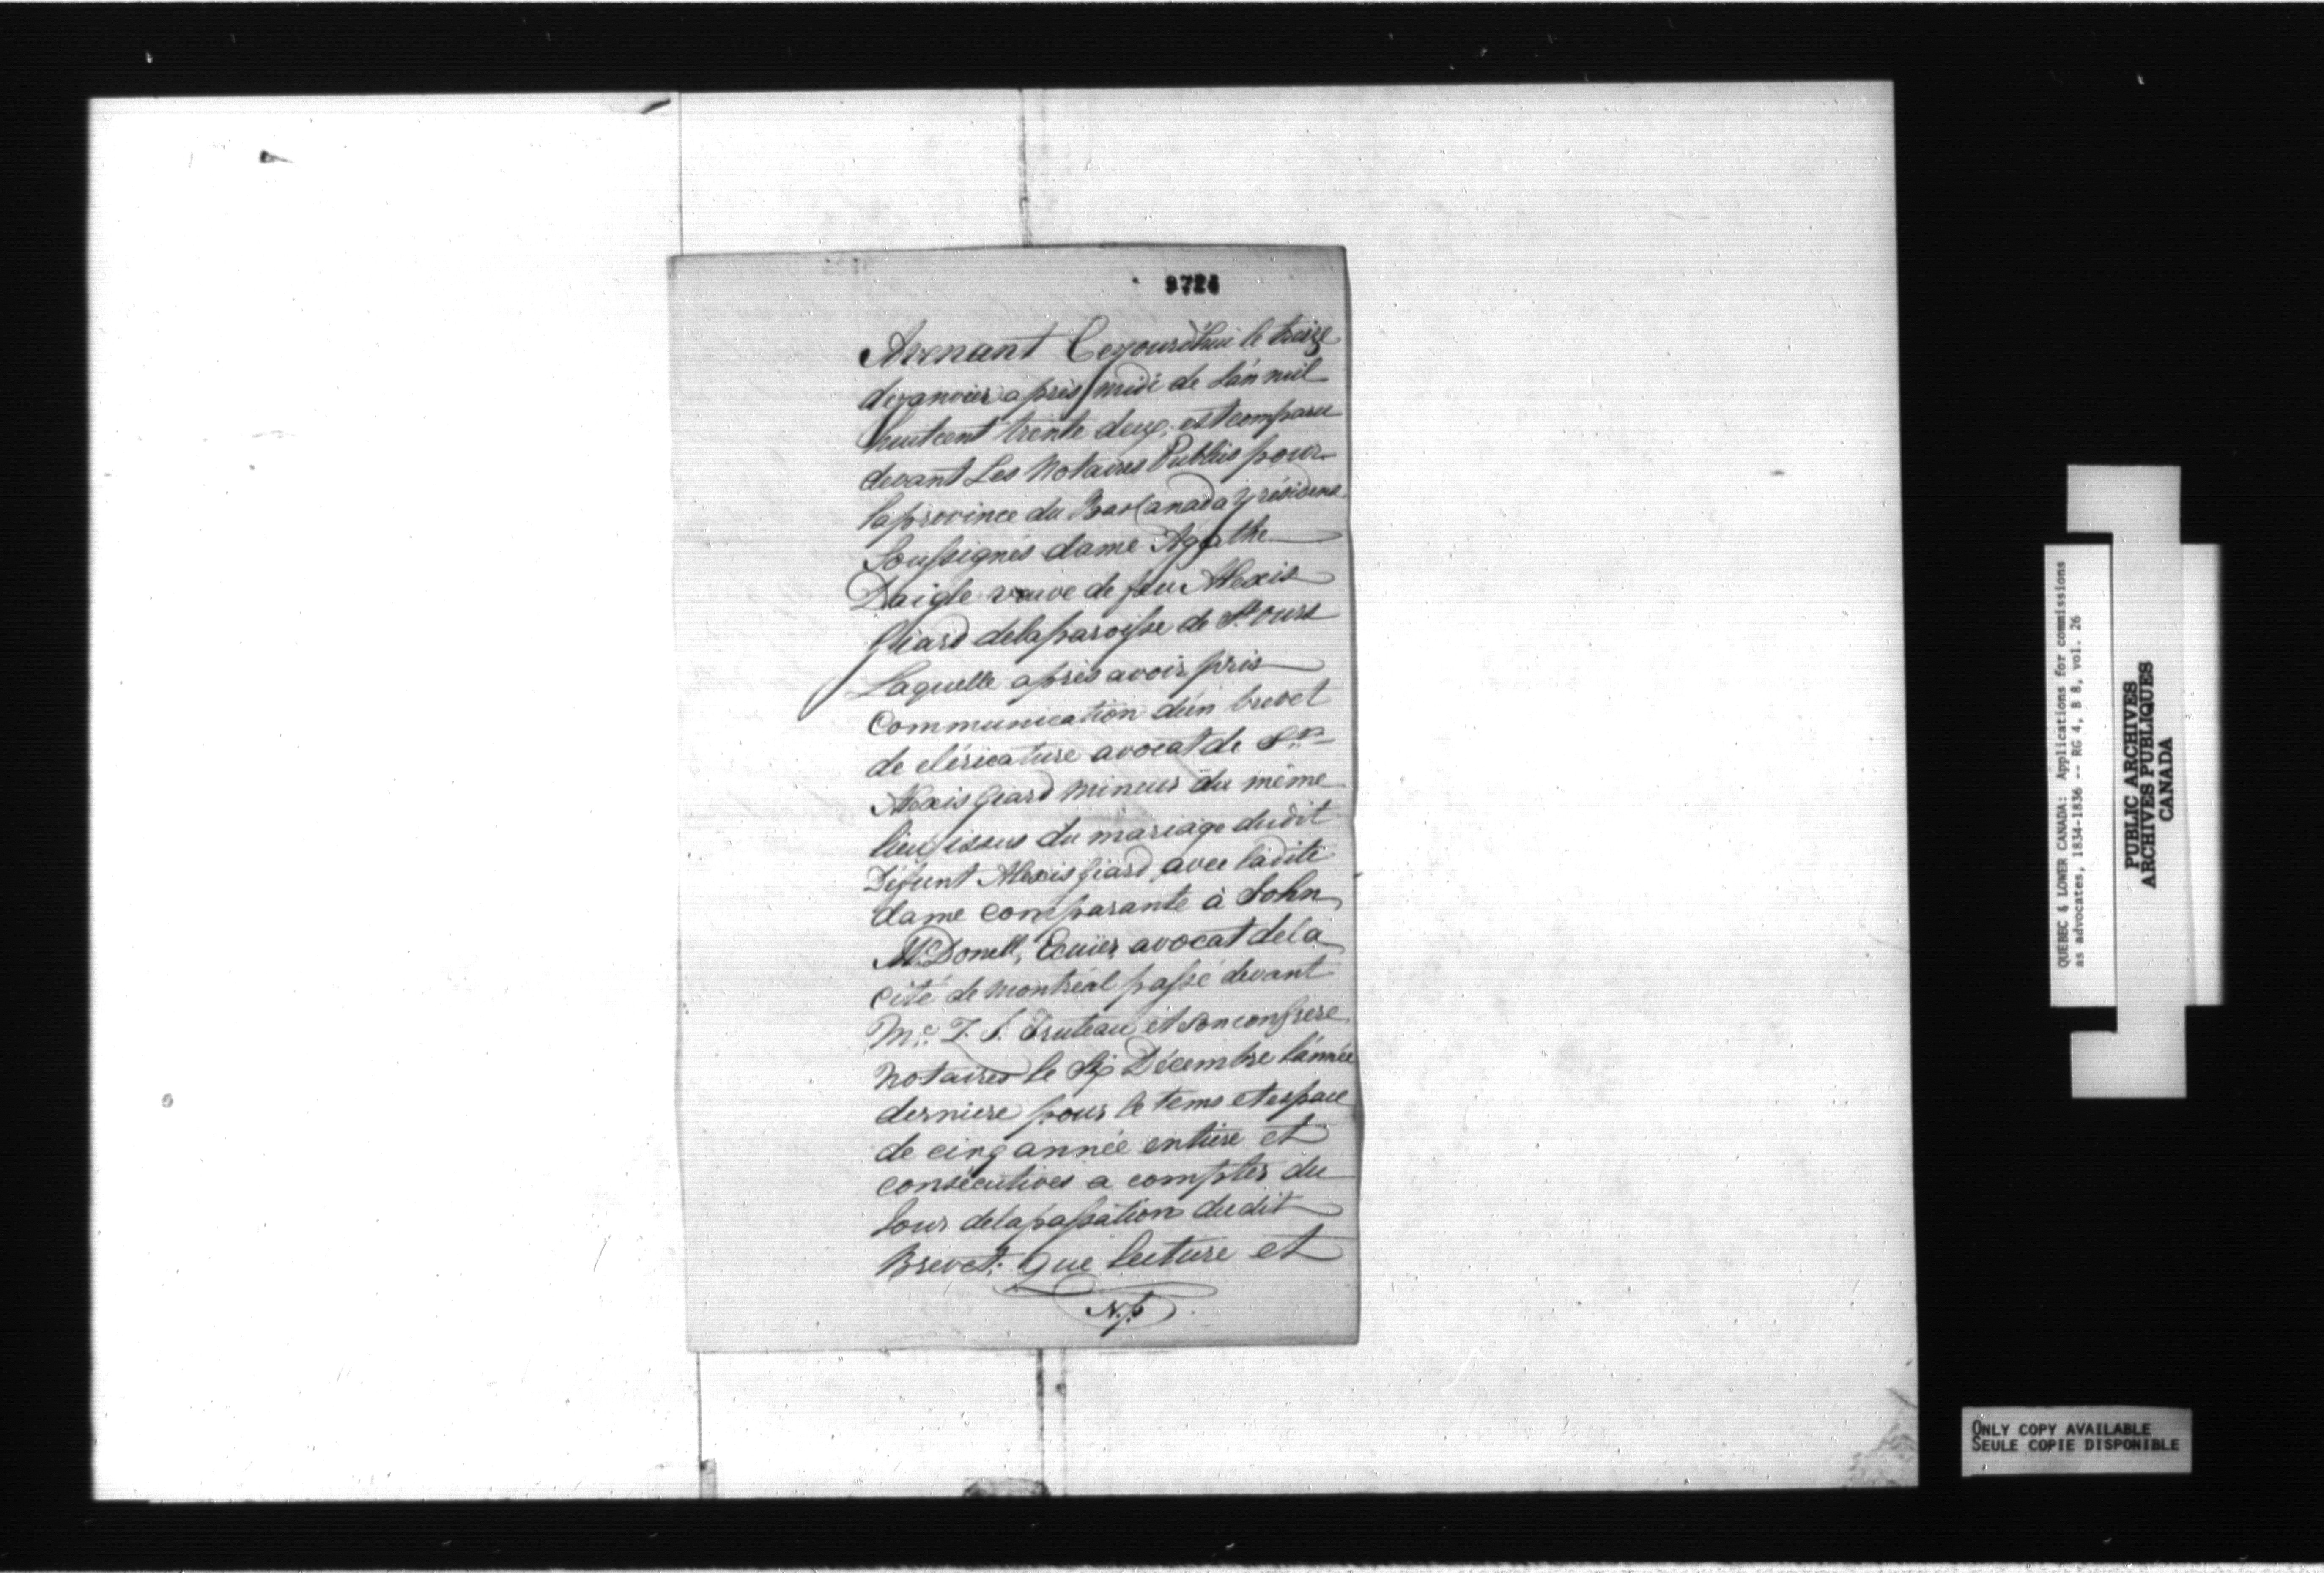 9724
Avenant Cejourdhui le treize
dejanvier après midi de L'an mil
huitcent trente deux, est comparu
devant Les Notaires Publics pour
la province du Bas Canada y résidens
Soussignés dame Agathe
Daigle veuve de feu Alexis
Giard delaparoisse de St. Ours
Laquelle après avoir pris
Communication d'un brevet
de cléricature avocat de Sr.
Alexis Giard mineur du même
lieu, issus du mariage dudit
Défunt Alexis Giard avec ladite
dame comparante à John
McDonell, Ecuier, avocat dela
cité de Montréal passé devant
Me. Truteau et son confrere
Notaires le Six Décembre l'année
derniere pour le tems et espace
de cinq année entiere et
consécutives a compter du
Jour delapassation dudit
Brevet; que lecture et
N.p
QUEBEC & LOWER CANADA: Applications for commissions
as advocates, 1834-1836 -- RG 4, B 8, vol. 26
PUBLIC ARCHIVES
ARCHIVES PUBLIQUES
CANADA
ONLY COPY AVAILABLE
SEULE COPIE DISPONIBLE